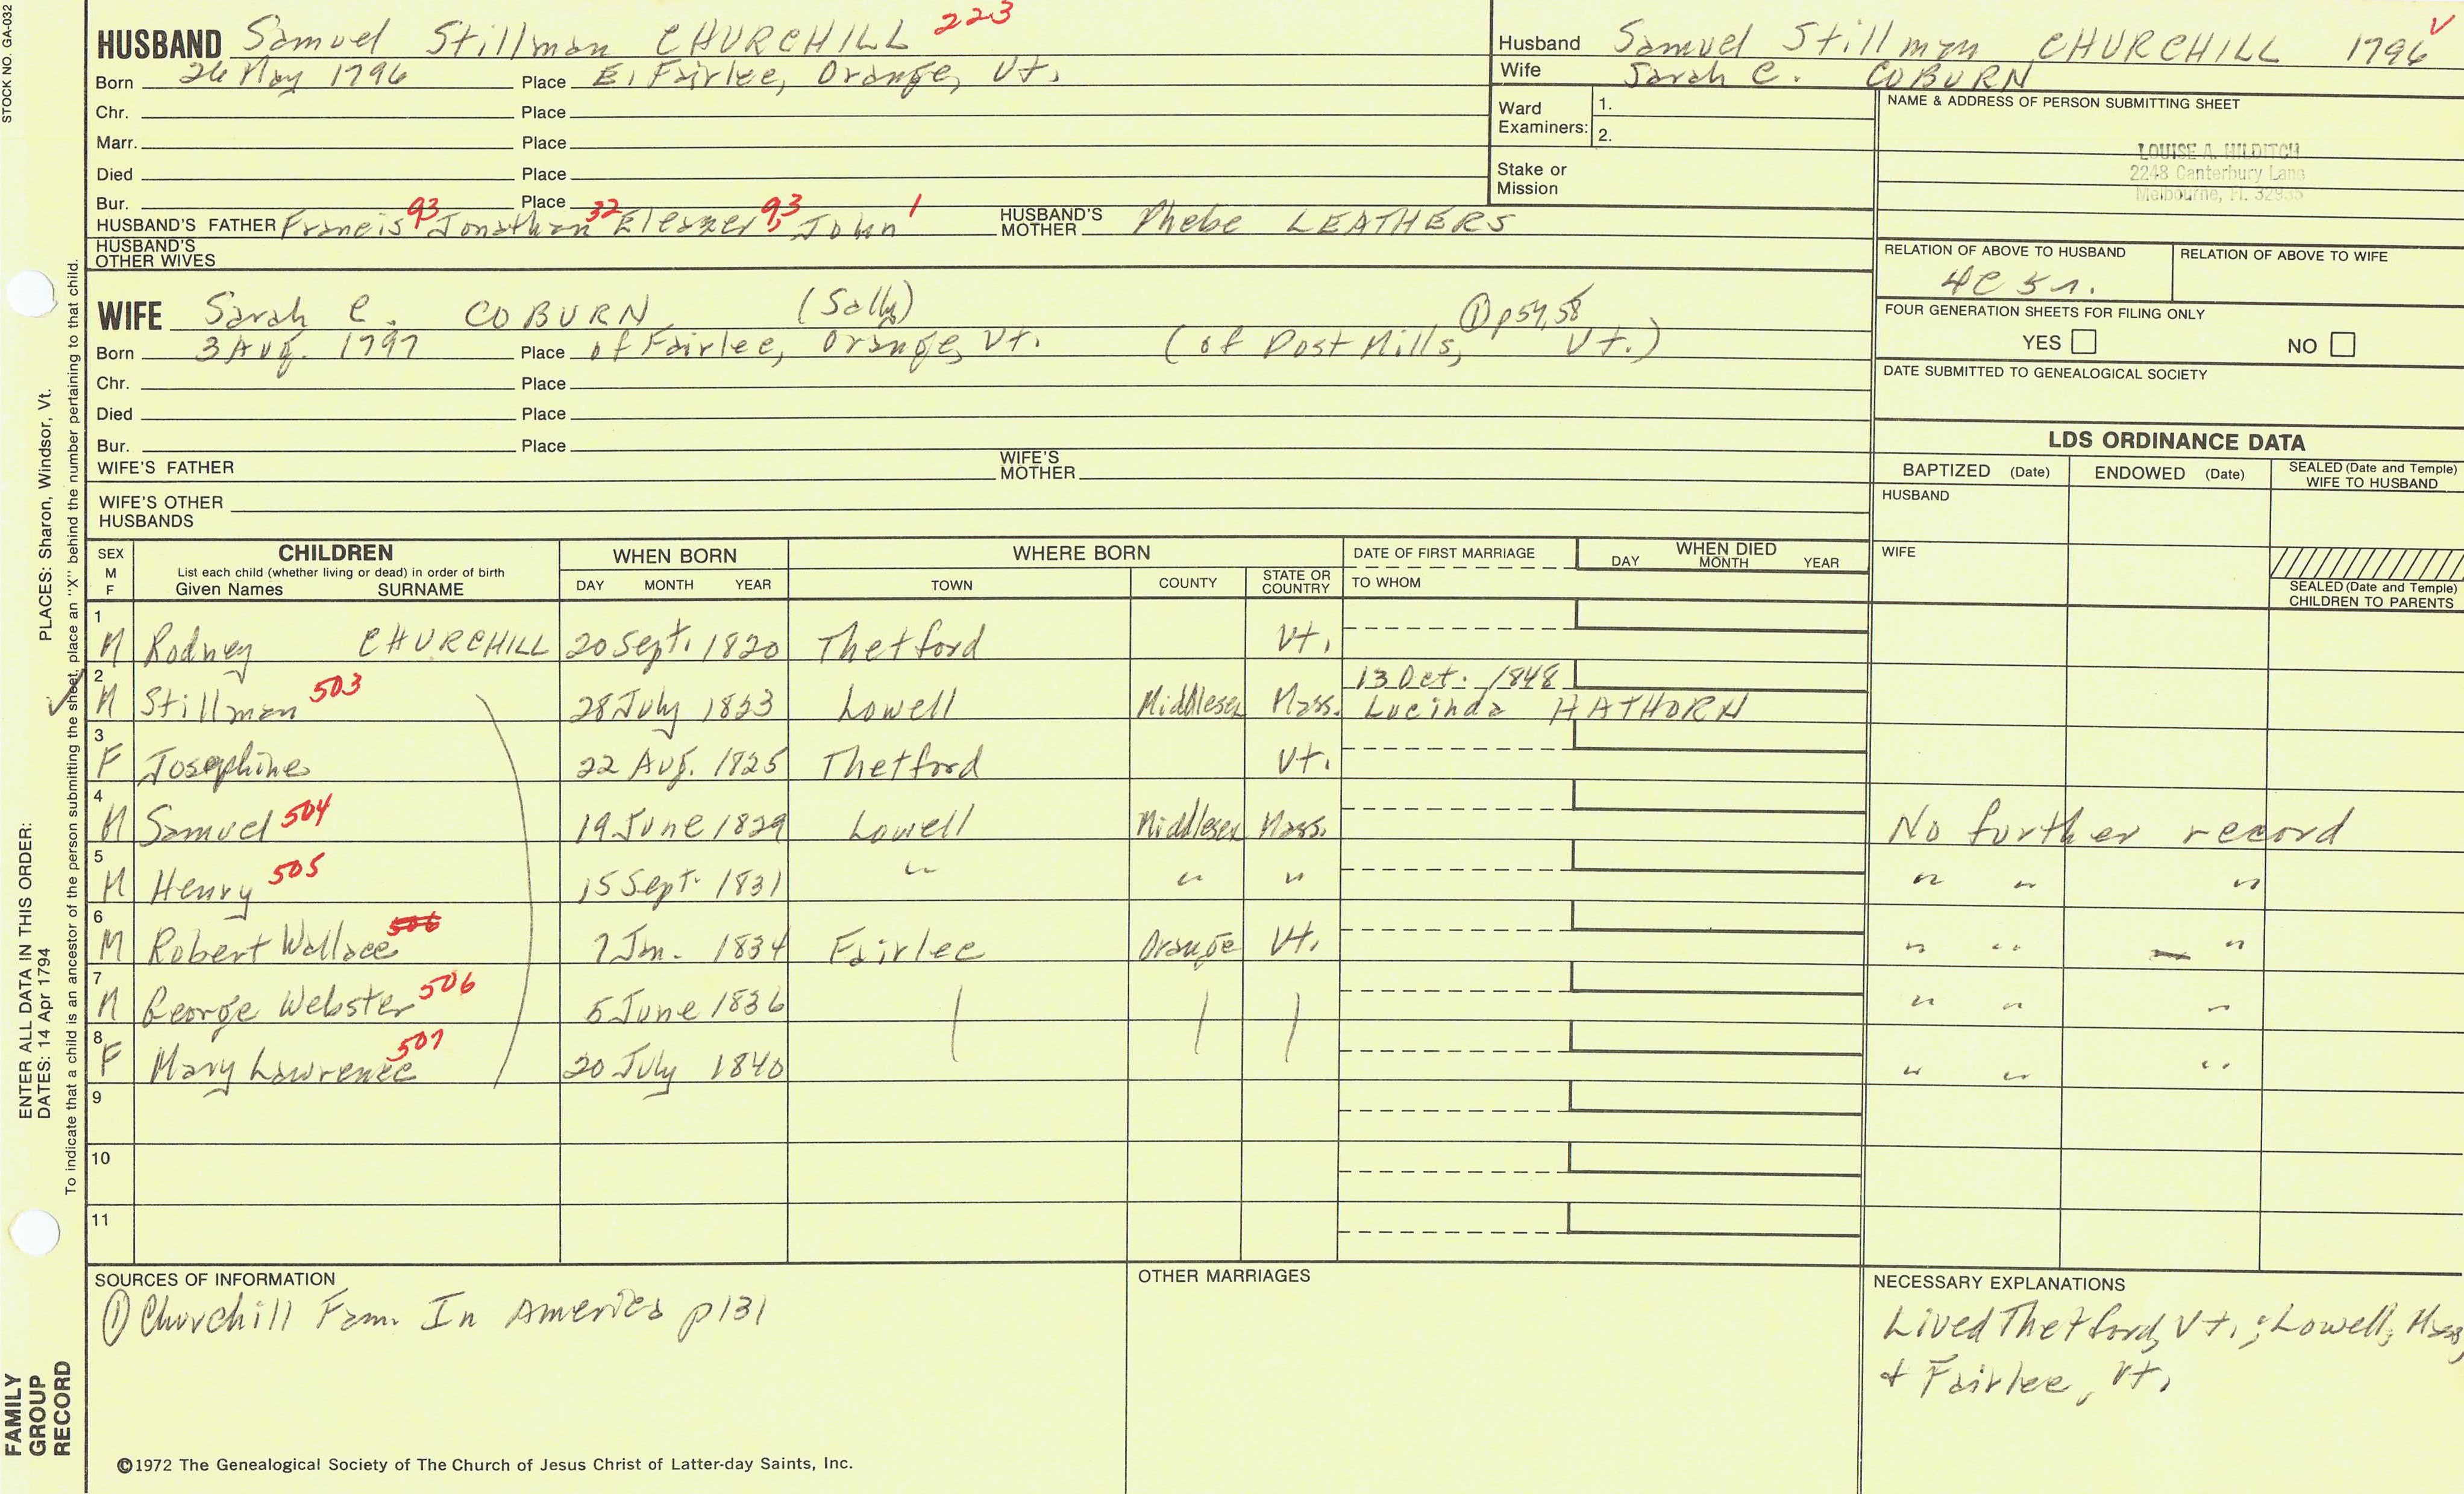 STOCK NO. GA-032
HUSBAND Samuel Stillman CHURCHILL 223
Born 26 May 1796 Place E. Fairlee, Orange, Vt.
Chr. Place
Marr. Place
Died Place
Bur. Place
HUSBAND'S FATHER Francis 93 Jonathan 32 Eleazer 9,3 John 1 HUSBAND'S MOTHER Phebe LEATHERS
HUSBAND'S OTHER WIVES
Husband Samuel Stillman CHURCHILL 1796 V
Wife Sarah C. COBURN
Ward Examiners: 1.
2.
Stake or Mission
NAME & ADDRESS OF PERSON SUBMITTING SHEET
LOUISE A. HILDITCH
2248 Canterbury Lane
Melbourne, Fl. 32935
RELATION OF ABOVE TO HUSBAND 4C 5r.
RELATION OF ABOVE TO WIFE
WIFE Sarah C. COBURN (Sally) ① p57,58
Born 3 Aug. 1797 Place of Fairlee, Orange, Vt. (of Post Mills, Vt.)
Chr. Place
Died Place
Bur. Place
WIFE'S FATHER WIFE'S MOTHER
WIFE'S OTHER HUSBANDS
FOUR GENERATION SHEETS FOR FILING ONLY
YES NO
DATE SUBMITTED TO GENEALOGICAL SOCIETY
LDS ORDINANCE DATA
BAPTIZED (Date) ENDOWED (Date) SEALED (Date and Temple) WIFE TO HUSBAND
HUSBAND
WIFE
SEALED (Date and Temple) CHILDREN TO PARENTS
SEX M F CHILDREN WHEN BORN WHERE BORN DATE OF FIRST MARRIAGE WHEN DIED
List each child (whether living or dead) in order of birth
Given Names SURNAME DAY MONTH YEAR TOWN COUNTY STATE OR COUNTRY TO WHOM DAY MONTH YEAR
1 M Rodney CHURCHILL 20 Sept. 1820 Thetford Vt.
2 M Stillman 503 28 July 1823 Lowell Middlesex Mass. 13 Oct. 1848 Lucinda HATHORN
3 F Josephine 22 Aug. 1825 Thetford Vt.
4 M Samuel 504 19 June 1829 Lowell Middlesex Mass. No further record
5 M Henry 505 15 Sept. 1831 " " " " " "
6 M Robert Wallace 506 7 Jan. 1834 Fairlee Orange Vt. " " "
7 M George Webster 506 5 June 1836 " " "
8 F Mary Lawrence 507 20 July 1840 " " "
9
10
11
SOURCES OF INFORMATION
① Churchill Fam. In America p131
OTHER MARRIAGES
NECESSARY EXPLANATIONS
Lived Thetford, Vt.; Lowell, Mass,
+ Fairlee, Vt.
©1972 The Genealogical Society of The Church of Jesus Christ of Latter-day Saints, Inc.
FAMILY GROUP RECORD
ENTER ALL DATA IN THIS ORDER:
DATES: 14 Apr 1794
PLACES: Sharon, Windsor, Vt.
To indicate that a child is an ancestor of the person submitting the sheet, place an "X" behind the number pertaining to that child.